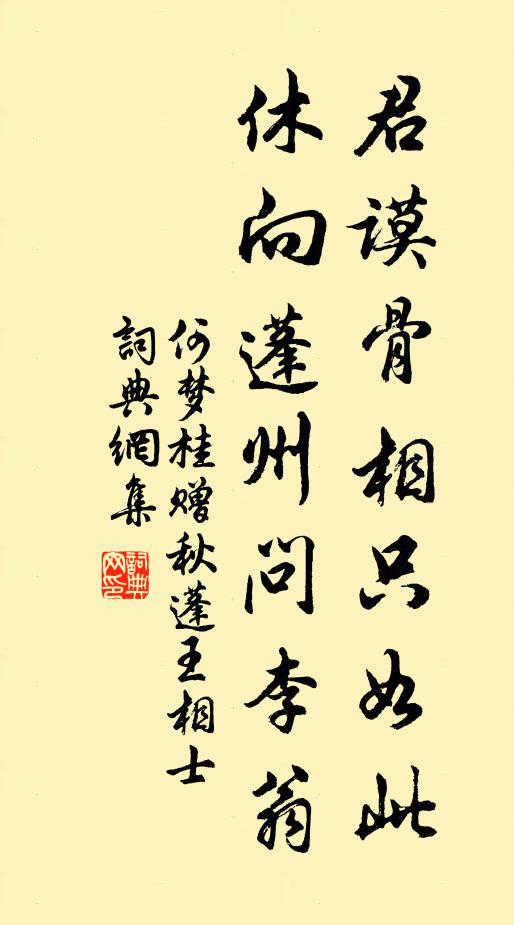 君谟骨相只如此
休向蓬州问李翁
何梦桂赠秋蓬王相士
詞典網集
詞典网印